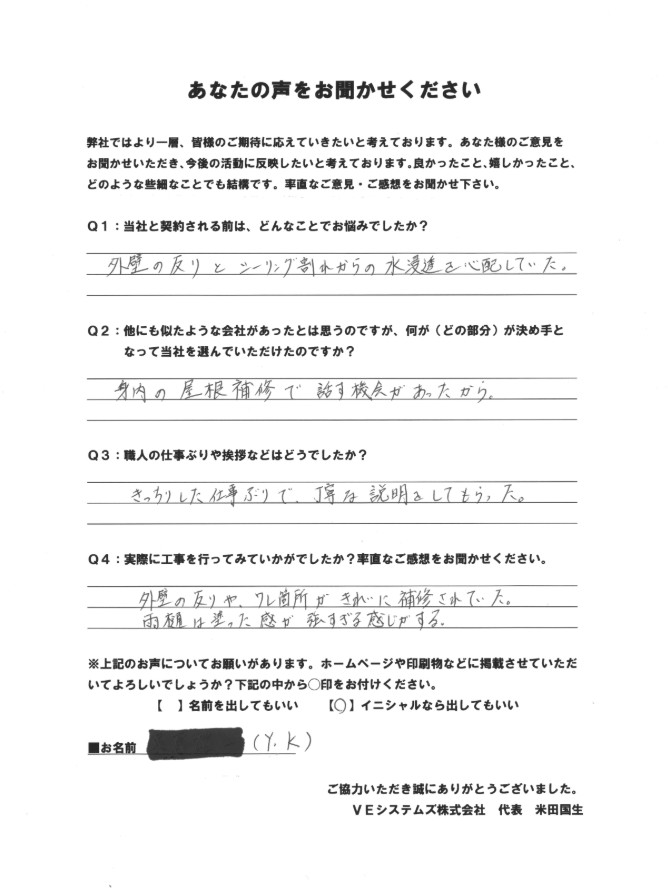 あなたの声をお聞かせください
弊社ではより一層、皆様のご期待に応えていきたいと考えております。あなた様のご意見を
お聞かせいただき、今後の活動に反映したいと考えております。良かったこと、嬉しかったこと、
どのような些細なことでも結構です。率直なご意見・ご感想をお聞かせ下さい。
Q1：当社と契約される前は、どんなことでお悩みでしたか？
外壁の反りとシーリング割れからの水浸透を心配していた。
Q2：他にも似たような会社があったとは思うのですが、何が（どの部分）が決め手と
なって当社を選んでいただけたのですか？
身内の屋根補修で話す機会があったから。
Q3：職人の仕事ぶりや挨拶などはどうでしたか？
きっちりした仕事ぶりで、丁寧な説明をしてもらった。
Q4：実際に工事を行ってみていかがでしたか？率直なご感想をお聞かせください。
外壁の反りや、ワレ箇所がきれいに補修されていた。
雨樋は塗った感が強すぎる感じがする。
※上記のお声についてお願いがあります。ホームページや印刷物などに掲載させていただ
いてよろしいでしょうか？下記の中から○印をお付けください。
【　】名前を出してもいい　【○】イニシャルなら出してもいい
■お名前　（Y.K）
ご協力いただき誠にありがとうございました。
VEシステムズ株式会社　代表　米田国生